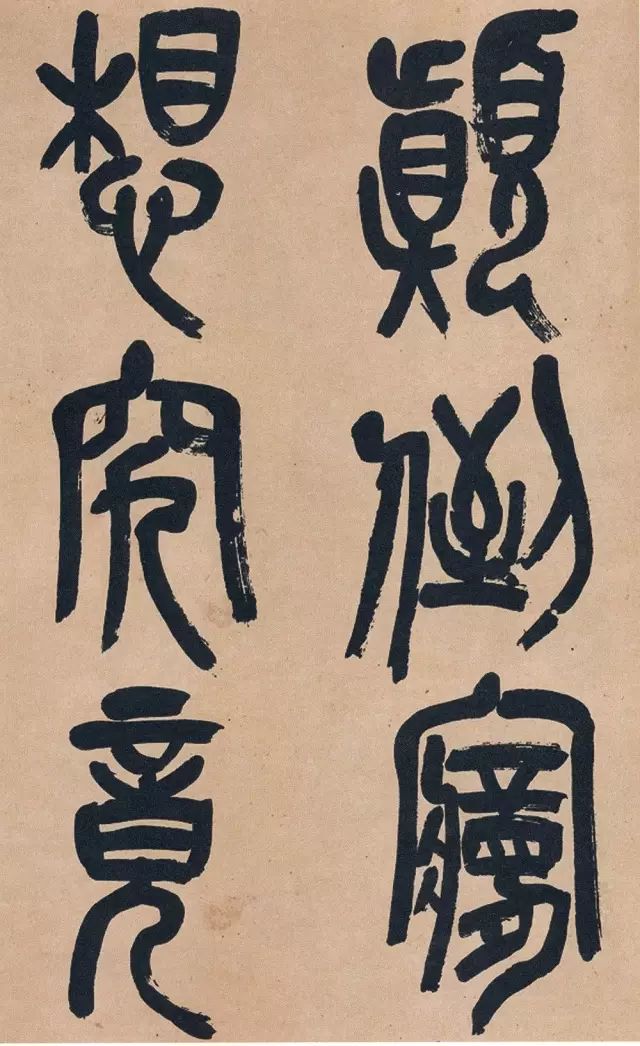 顛倒夢
想究竟